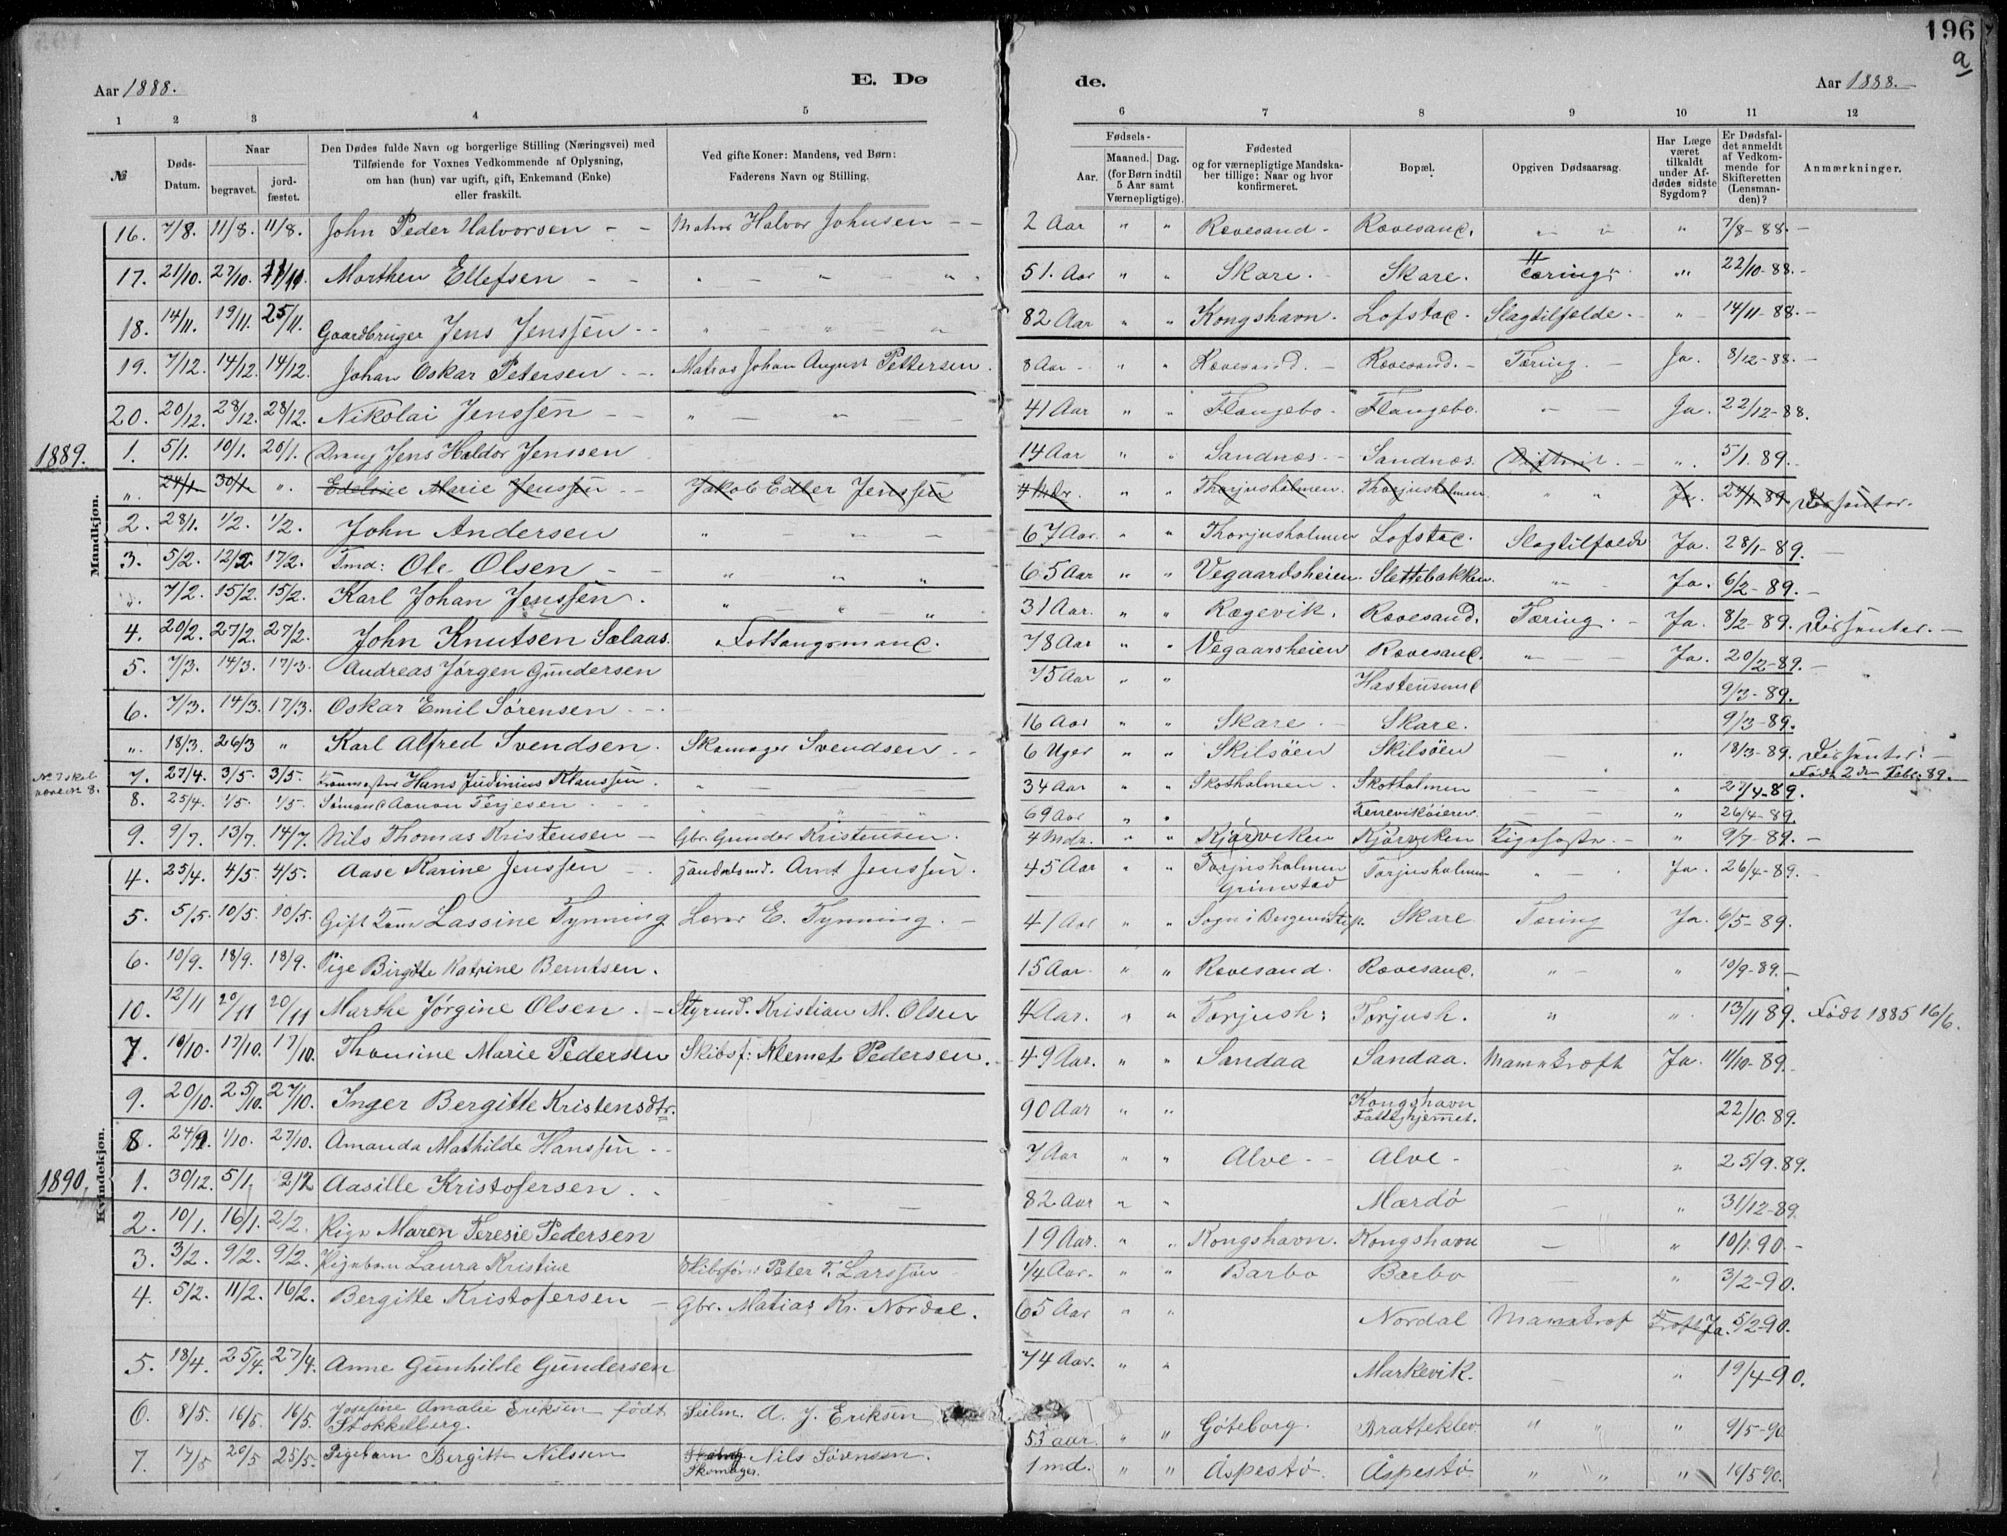 196
a
Aar 1888.
E. Dø
de.
Aar 1888.
1 2 3 4 5 6 7 8 9 10 11 12
№
Døds-Datum.
Naar
begravet.
jord-fæstet.
Den Dødes fulde Navn og borgerlige Stilling (Næringsvei) med
Tilføiende for Voxnes Vedkommende af Oplysning,
om han (hun) var ugift, gift, Enkemand (Enke)
eller fraskilt.
Ved gifte Koner: Mandens, ved Børn:
Faderens Navn og Stilling.
Fødsels-
Aar.
Maaned. Dag.
(for Børn indtil
5 Aar samt
Værnepligtige).
Fødested
og for værnepligtige Mandska-
ber tillige: Naar og hvor
konfirmeret.
Bopæl.
Opgiven Dødsaarsag.
Har Læge
været
tilkaldt
under Af-
dødes sidste
Sygdom?
Er Dødsfal-
det anmeldt
af Vedkom-
mende for
Skifteretten
(Lensman-
den)?
Anmærkninger.
Mandkjøn.
16. 7/8. 11/8. 11/8. John Peder Halvorsen - - Matros Halvor Johnsen - - 2 Aar " " Revesand - Revesand. " " " 7/8-88.-
17. 21/10. 27/10. Morthen Ellefsen - - " - " - " 51. Aar " " Skare. Skare. Tæring. " 22/10-88.-
18. 14/11. 19/11. 25/11. Gaardbruger Jens Jenssen - - " - " - " 82 Aar " " Kongshavn. Lofstad. Slagtilfælde. - " 14/11-88.-
19. 7/12. 14/12. 14/12. Johan Oskar Petersen - - Matros Johan August Pettersen. 8 Aar - " " Revesand. - Revesand. - Tæring. - Ja. 8/12-88.-
20. 20/12. 28/12. 28/12. Nikolai Jenssen - - " - " 41 Aar " " Flangebo. Flangebo. - - Ja. 22/12-88.
1889. 1. 5/1. 10/1. 20/1. Dreng Jens Haldor Jenssen 14 Aar " " Sandnæs. - Sandnæs. - " 5/1 89.
" 24/1 30/1 " Marie Jenssen - - Jakob Edler Jenssen 4 Mdr. " " Thorjusholmen. Thorjusholmen " " Ja 24/1 89. Dissenter.
2. 28/1. 1/2. 1/2. John Andersen " - - - 67 Aar. " " Thorjusholmen Lofstad. Slagtilfælde Ja. 28/1-89. -
3. 5/2. 12/2. 17/2. Tmd: Ole Olsen - " " " 65 Aar " " Vegaardsheien. Slettebakken. " - Ja. 6/2-89. -
" 7/2. 15/2. 15/2. Karl Johan Jenssen. " - " - " 31 Aar. " " Rægevik. Revesand. Tæring. - Ja. 8/2-89. Dissenter. -
4. 20/2. 27/2. 27/2. John Knutsen Sælaas. Fattongsmand. 78 Aar " " Vegaarsheien Revesand. " - - Ja. 20/2-89. -
5. 7/3. 14/3. 17/3. Andreas Jørgen Gundersen 75 Aar " " Hastensund 9/3-89.
6. 7/3. 14/3. 17/3. Oskar Emil Sørensen - - 16 Aar " " Skare. - Skare. 9/3-89.
" 18/3. 26/3 " Karl Alfred Svendsen. Skomager Svendsen - - 6 Uger " " Skilsöen Skilsöen " 18/3-89. Dissenter. -
Født 2den Febr. 89.
No 7 skal
være No 8.
7. 27/4. 3/5. 3/5. Hans Judinius Klaussen. " - 34 Aar " " Skotholmen. Skotholmen - - " 27/4-89.
8. 25/4. 1/5. 1/5. Sømand Aanon Terjesen - - - 69 Aar " " - - " 26/4-89.
9. 9/7. 13/7. 14/7. Nils Thomas Kristensen - Gbr. Gunder Kristensen. 4 Mdr. " " Kjørviken Kjørviken - " 9/7-89. -
Kvindekjøn.
4. 25/4. 4/5. 4/5. Aase Karine Jenssen - Handelsmd. Arnt Jenssen. 45 Aar " " Torjusholmen Grimstad Torjusholmen " - Ja. 26/4-89.
5. 5/5. 10/5. 10/5. Gift Kone Lassine Tynning Lærer E. Tynning. - 41 Aar " " Sogn i Bergens Stift. Skare Tæring Ja. 6/5-89.
6. 10/9. 18/9. 18/9. Pige Birgitte Katrine Berntsen. 15 Aar. " " Revesand. Revesand. " - " 10/9-89.-
10. 12/11 20/11 20/11 Marthe Jørgine Olsen. - Styrmd. Kristian M. Olsen 4 Aar. " " Torjush: Torjush. " " 13/11 89. Født 1885 16/6.
7. 10/10. 17/10. 17/10. Thomine Marie Pedersen Skibsf: Klemet Pedersen. 49 Aar. " " Sandaa Sandaa. Mavekræft Ja. 11/10-89.
9. 20/10. 25/10. 27/10. Inger Bergitte Kristensdtr. 90 Aar " " Kongshavn Fattighjemmet. 22/10. 89.
8. 24/9. 1/10. 27/10. Amanda Mathilde Hanssen - - 7 Aar " " Alve - - Alve - " 25/9.89.
1890. 1. 30/12. 5/1. 2/2 Aasille Kristofersen. - - 82 Aar " " Mærdö - " 31/12-89.
2. 10/1. 16/1. 2/2. Pige Maren Teresie Pedersen 19 Aar. " " Kongshavn. Kongshavn - " 10/1.90. -
3. 3/2. 9/2. 9/2. Pigebarn Laura Kristine Skibsfør: Peter T. Larssen 1/4 Aar. " " Barbo Barbo - " 3/2-90.
4. 5/2. 11/2. 16/2. Bergitte Kristofersen - Gbr. Matias Kr. Nordal. 65 Aar " " Nordal Mavekræf Ja. 5/2-90.
5. 18/4. 25/4. 27/4. Anne Gunhilde Gundersen 74 Aar. " " Markevik. - " 19/4-90.
6. 8/5. 16/5. 16/5. Josefine Amalie Eriksen født
Stokkelberg. Seilm. A. J. Eriksen 53 aar. " " Göteborg. Brattekler " " " 9/5-90
7. 17/5 20/5 25/5. Pigebarn Bergitte Nilssen Nils Sörensen.
Skomager. 1 md. " " Aspestö. Aspestö " " " 16/5 90.